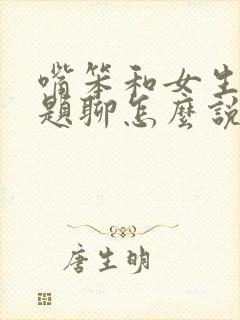 嘴笨和女生
題聊怎麼說
唐生明